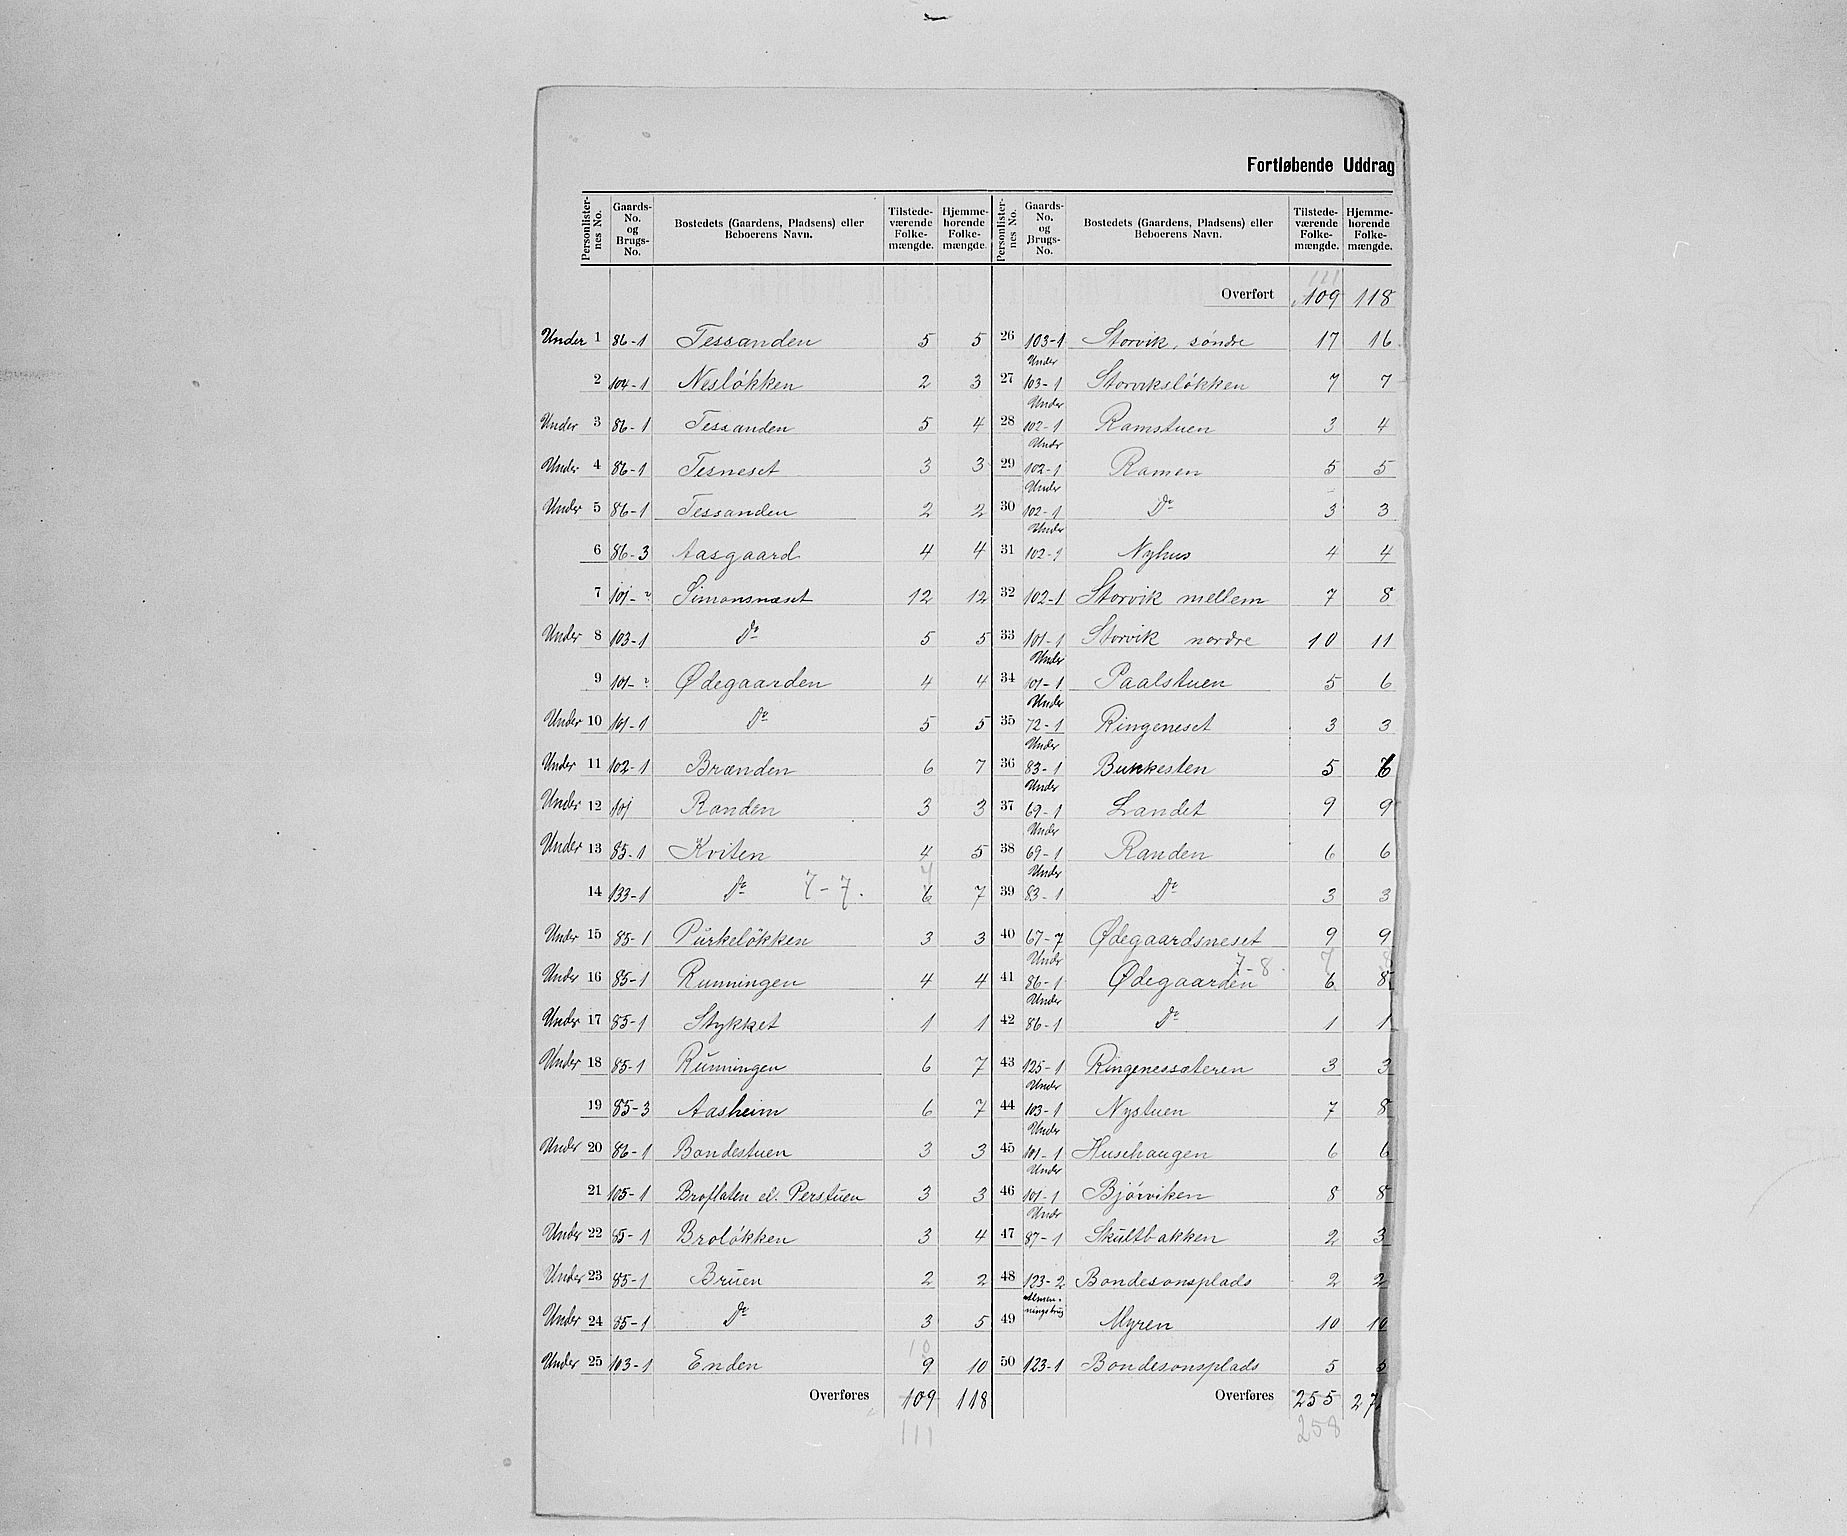 Fortløbende Uddrag
Personlisternes No. | Gaards-No. og Brugs-No. | Bostedets (Gaardens, Pladsens) eller Beboerens Navn. | Tilstedeværende Folkemængde. | Hjemmehørende Folkemængde. | Personlisternes No. | Gaards-No. og Brugs-No. | Bostedets (Gaardens, Pladsens) eller Beboerens Navn. | Tilstedeværende Folkemængde. | Hjemmehørende Folkemængde.
111
Overført 109 118
Under 1 86-1 Tessanden 5 5
2 104-1 Nesløkken 2 3
Under 3 86-1 Tessanden 5 4
Under 4 86-1 Tesneset 3 3
Under 5 86-1 Tessanden 2 2
6 86-3 Aasgaard 4 4
7 101-2 Simonsnæset 12 12
Under 8 103-1 Do 5 5
9 101-2 Ødegaarden 4 4
Under 10 101-1 Do 5 5
Under 11 102-1 Brænden 6 7
Under 12 101 Randen 3 3
Under 13 85-1 Kviten 4 5
14 133-1 Do 7-7. 7 6 7
Under 15 85-1 Purkeløkken 3 3
Under 16 85-1 Runningen 4 4
Under 17 85-1 Stykket 1 1
Under 18 85-1 Runningen 6 7
19 85-3 Aasheim 6 7
Under 20 86-1 Bondestuen 3 3
21 105-1 Broflaten el. Perstuen 3 3
Under 22 85-1 Broløkken 3 4
Under 23 85-1 Bruen 2 2
Under 24 85-1 Do 3 5
Under 25 103-1 Enden 10 9 10
Overføres 109 118
111
26 103-1 Storvik, søndre 17 16
27 Under 103-1 Storviksløkken 7 7
28 Under 102-1 Ramstuen 3 4
29 Under 102-1 Ramen 5 5
30 Under 102-1 Do 3 3
31 Under 102-1 Nyhus 4 4
32 102-1 Storvik mellem 7 8
33 101-1 Storvik nordre 10 11
34 Under 101-1 Paalstuen 5 6
35 Under 72-1 Ringeneset 3 3
36 Under 83-1 Bukkesten 5 6
37 Under 69-1 Landet 9 9
38 Under 69-1 Randen 6 6
39 Under 83-1 Do 3 3
40 67-7 Ødegaardsneset 9 9
41 Under 86-1 Ødegaarden 7-8. 7 6 8
42 Under 86-1 Do 1 1
43 125-1 Ringenessæteren 3 3
44 Under 103-1 Nystuen 7 8
45 Under 101-1 Husehaugen 6 6
46 Under 101-1 Bjørviken 8 8
47 Under 87-1 Skultbakken 2 3
48 123-2 Bondesonsplads 2 2
49 Almenningsbrug Myren 10 10
50 123-1 Bondesonsplads 5 5
Overføres 255 27
258